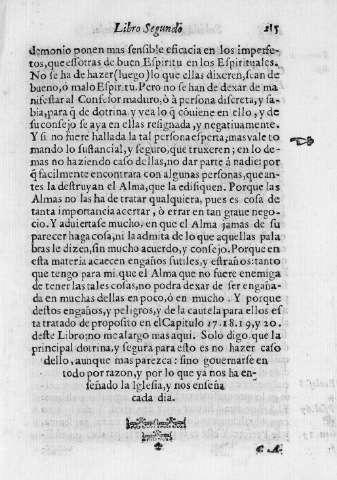 Libro Segundo 215
demonio ponen mas sensible eficacia en los imperfe-
tos, que essotras de buen Espiritu en los Espirituales.
No se ha de hazer (luego) lo que ellas dixeren, sean de
bueno, ô malo Espiritu. Pero no se han de dexar de ma
nifestar al Confesor maduro, ô à persona discreta, y sa-
bia, para q̃ de dotrina y vea lo q̃ cõuiene en ello, y de
su consejo se aya en ellas resignada, y negatiuamente.
Y si no fuere hallada la tal persona esperta; mas vale to
mando lo sustancial, y seguro, que truxeren; en lo de-
mas no haziendo caso dellas, no dar parte â nadie: por
q̃ facilmente encontrara con algunas personas, que an-
tes la destruyan el Alma, que la edifiquen. Porque las
Almas no las ha de tratar qualquiera, pues es cosa de
tanta importancia acertar, ô errar en tan graue nego-
cio. Y aduiertase mucho, en que el Alma jamas de su
parecer haga cosa, ni la admita de lo que aquellas pala
bras le dizen, sin mucho acuerdo, y consejo. Porque en
esta materia acaecen engaños sutiles, y estraños: tanto
que tengo para mi que el Alma que no fuere enemiga
de tener las tales cosas, no podra dexar de ser engaña-
da en muchas dellas en poco, ô en mucho. Y porque
destos engaños, y peligros, y de la cautela para ellos es
ta tratado de proposito en el Capitulo 17. 18. 19, y 20.
deste Libro; no me alargo mas aqui. Solo digo que la
principal dotrina, y segura para esto es no hazer caso
dello, aunque mas parezca: sino gouernarse en
todo por razon, y por lo que ya nos ha en-
señado la Iglesia, y nos enseña
cada dia.